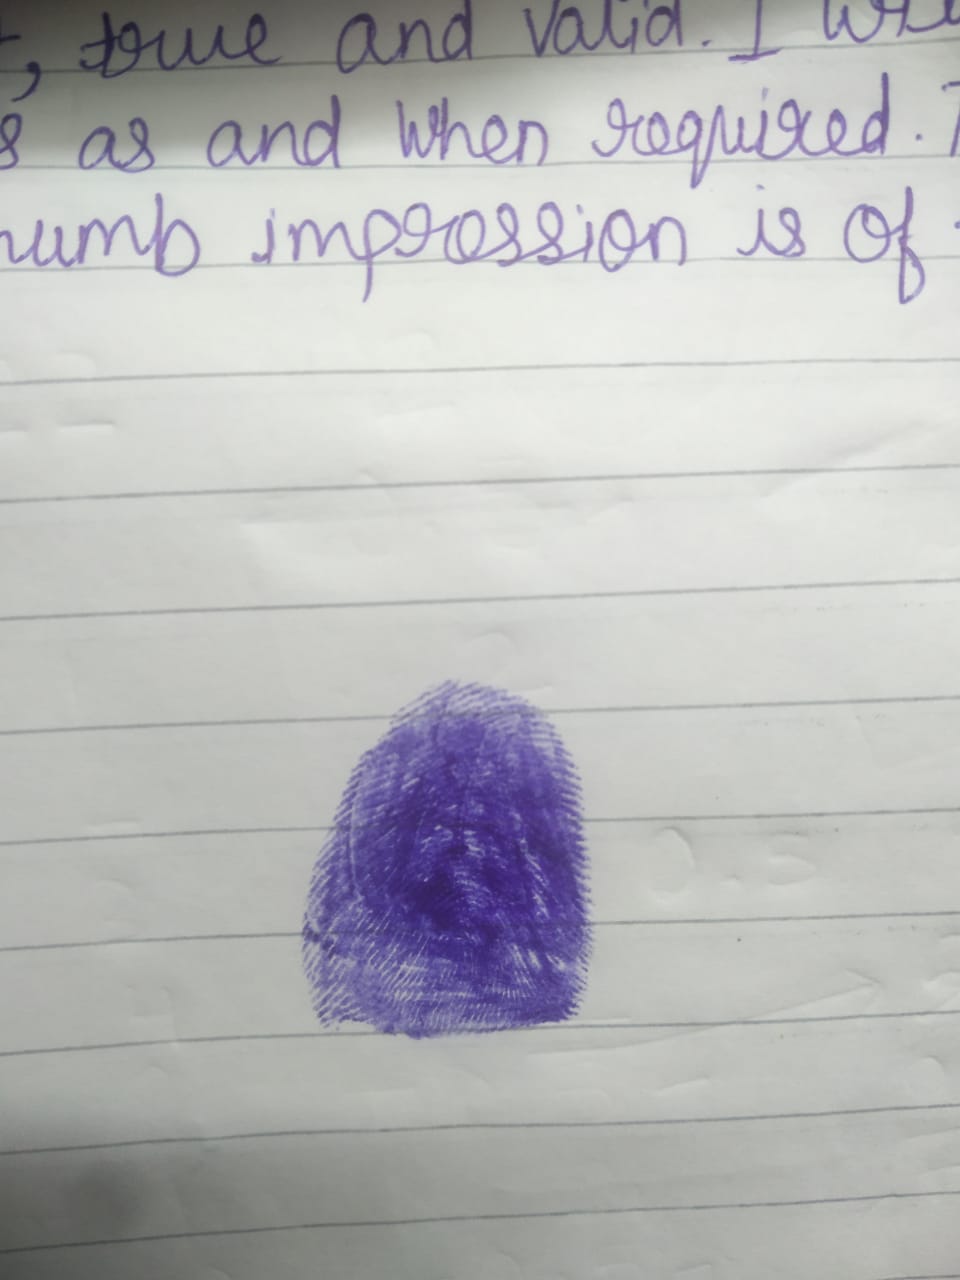 , true and valid. I
s as and when required.
humb impression is of